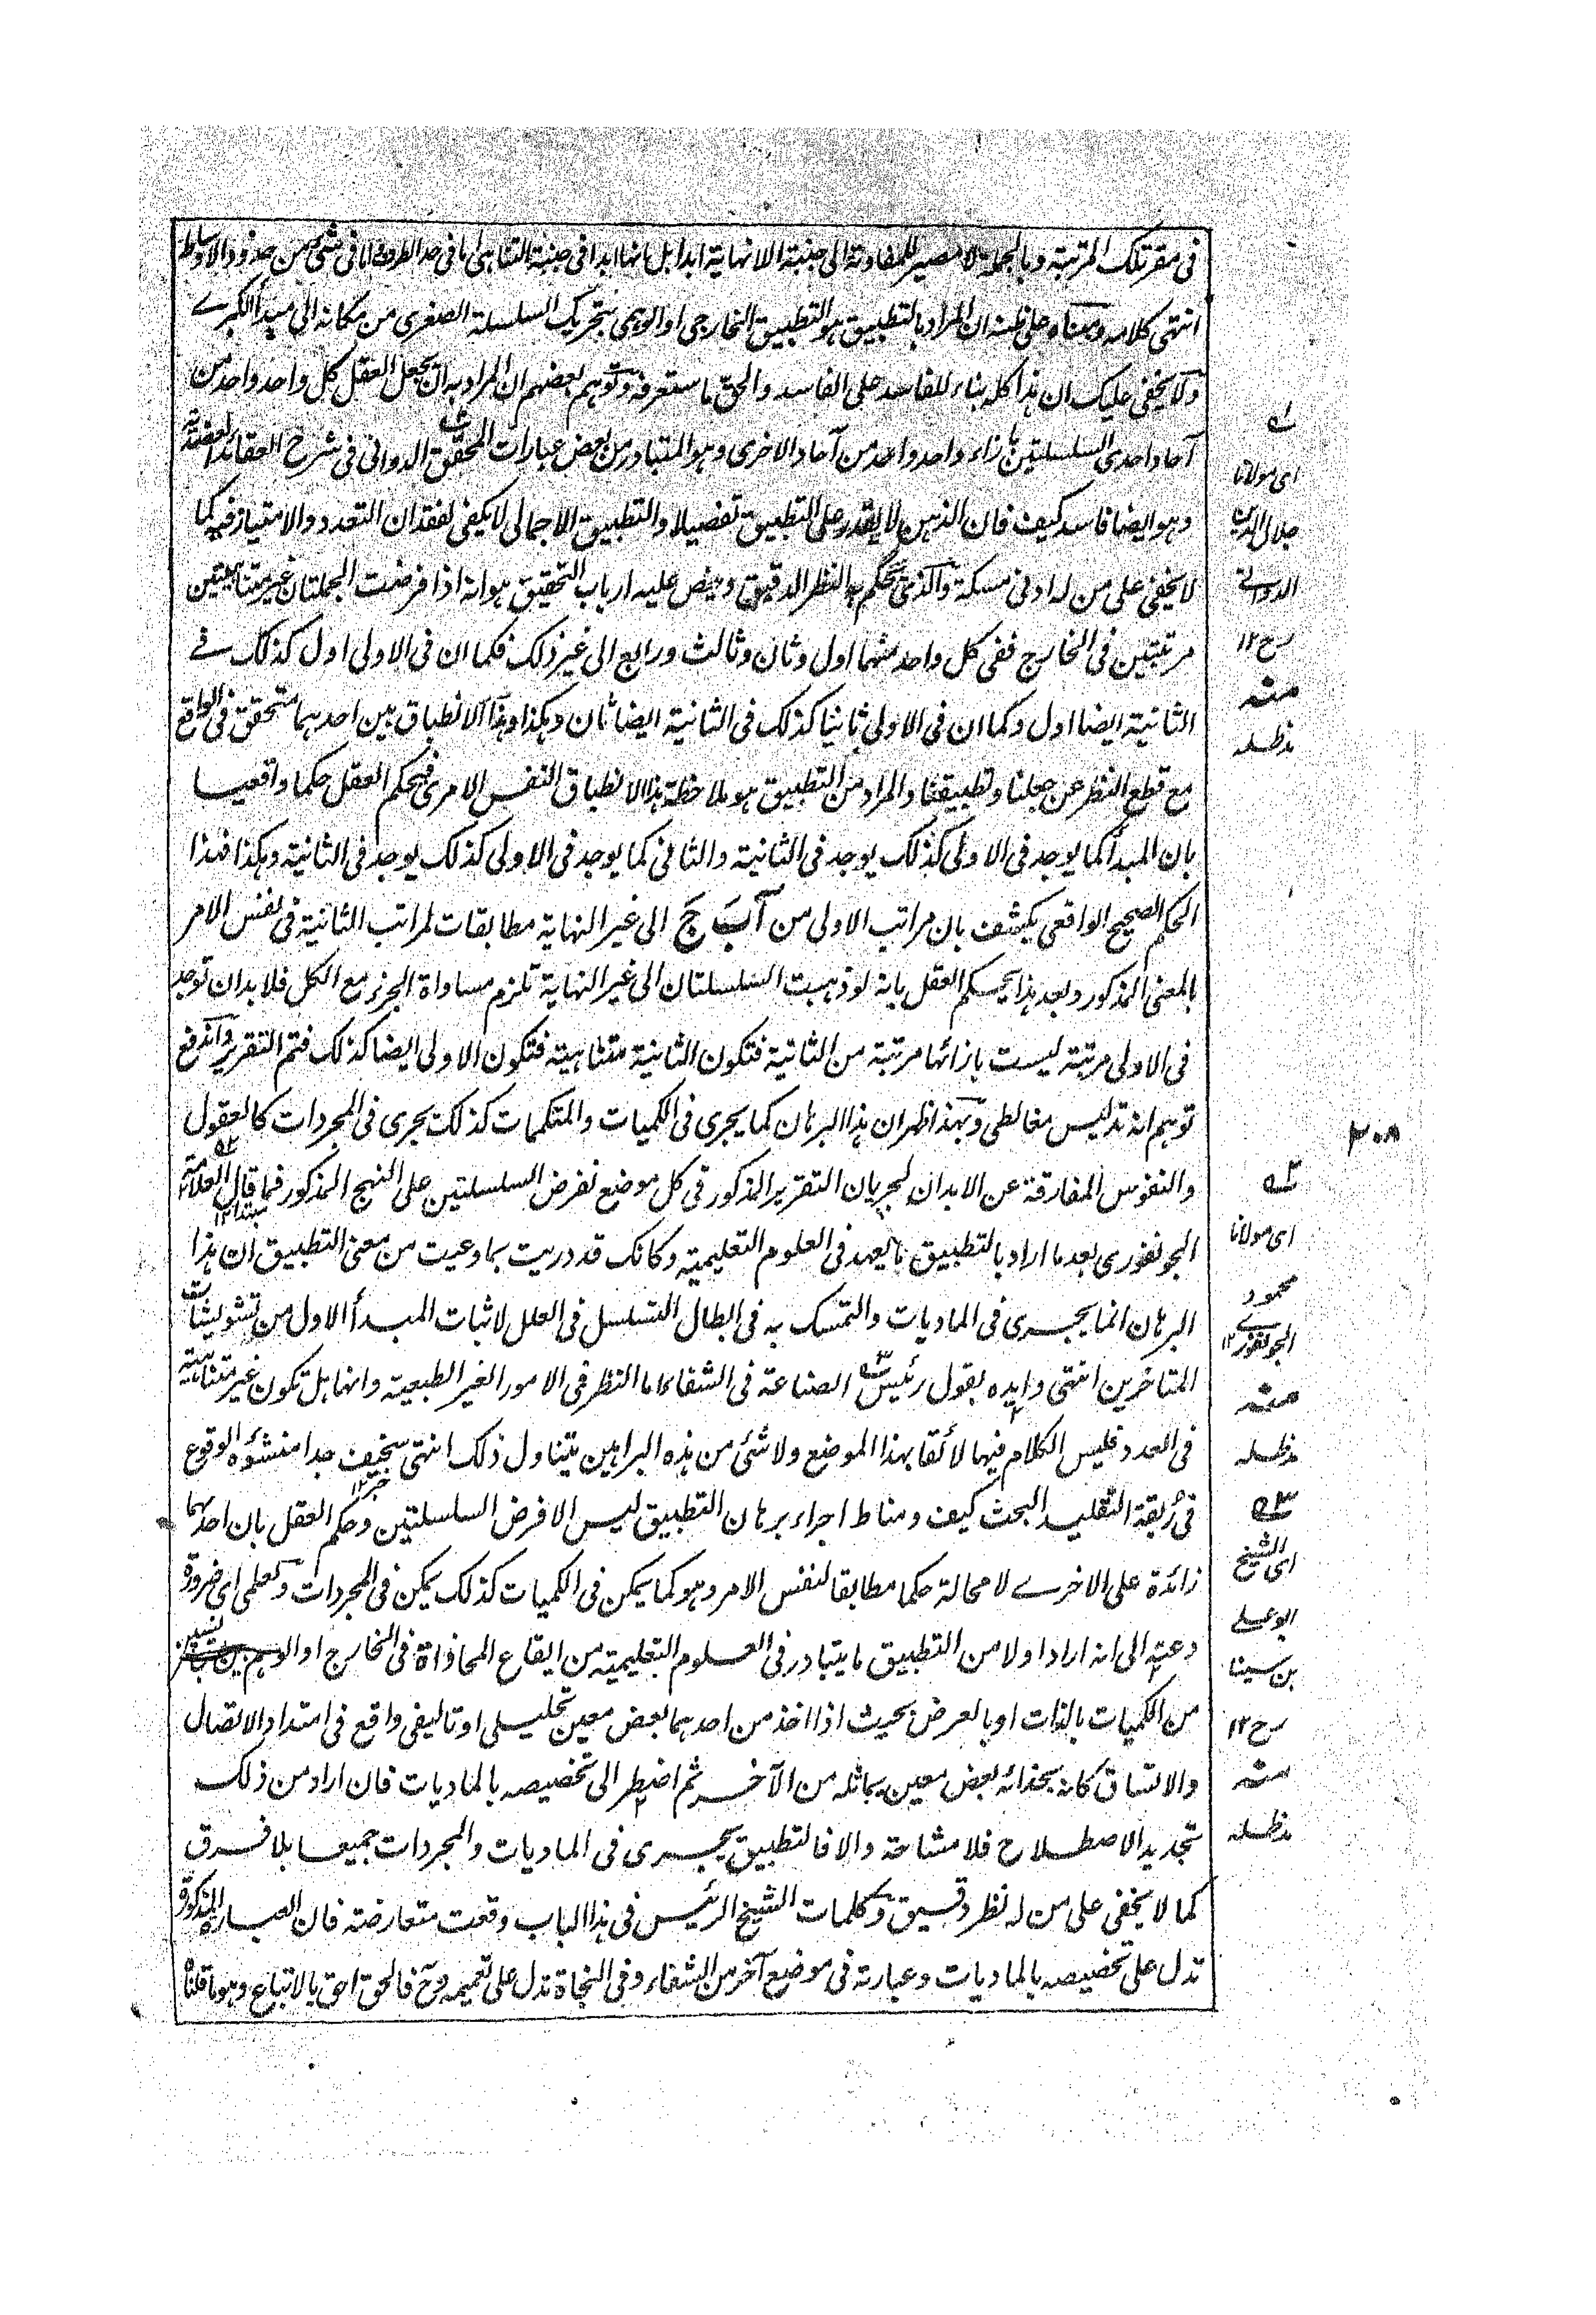 فى مقر تلك المرتبة وبالجملة لا مصير للمفاوتة الى جنبة اللانهاية ابدا بل انها ابدا فى جنبة التناهى اما فى حد الطرف واما فى شئ من حدود الاوساط
انتهى كلامه ومبناه على ظنه ان المراد بالتطبيق هو التطبيق الخارجى او الوهمى بتحريك السلسلة الصغرى من مكانه الى مبدأ الكبرے
ولا يخفى عليك ان هذا كله بناء للفاسد على الفاسد والحق ما ستعرفه وتوهم بعضهم ان المراد به ان يجعل العقل كل واحد واحد من
آحاد احدى السلسلتين بازاء واحد واحد من آحاد الاخرى وهو المتبادر من بعض عبارات المحقق الدوانى فى شرح العقائد العضدية
وهو ايضا فاسد كيف فان الذهن لا يقدر على التطبيق تفصيلا والتطبيق الاجمالى لا يكفى لفقدان التعدد والامتياز فيه كما
لا يخفى على من له ادنى مسكة والذى يحكم به النظر الدقيق وينص عليه ارباب التحقيق هو انه اذا فرضت الجملتان غير متناهيتين
مرتبتين فى الخارج ففى كل واحد منهما اول وثان وثالث ورابع الى غير ذلك فكما ان فى الاولى اول كذلك فے
الثانية ايضا اول وكما ان فى الاولى ثانيا كذلك فى الثانية ايضا ثان وهكذا وهذا الانطباق بين احدهما متحقق فى الواقع
مع قطع النظر عن جعلنا وتطبيقنا والمراد من التطبيق هو ملاحظة هذا الانطباق النفس الامرى فيحكم العقل حكما واقعيا
بان المبدأ كما يوجد فى الاولى كذلك يوجد فى الثانية والثانى كما يوجد فى الاولى كذلك يوجد فى الثانية وهكذا فهذا
الحكم الصحيح الواقعى يكشف بان مراتب الاولى من آ ب ج الى غير النهاية مطابقات لمراتب الثانية فى نفس الامر
بالمعنى المذكور وبعد هذا يحكم العقل بانه لو ذهبت السلسلتان الى غير النهاية تلزم مساواة الجزء مع الكل فلا بد ان توجد
فى الاولى مرتبة ليست بازائها مرتبة من الثانية فتكون الثانية متناهية فتكون الاولى ايضا كذلك فتم التقرير واندفع
توهم انه تدليس مغالطى وبهذا ظهر ان هذا البرهان كما يجرى فى الكميات والمتكممات كذلك يجرى فى المجردات كالعقول
والنفوس المفارقة عن الابدان لجريان التقرير المذكور فى كل موضع نفرض السلسلتين على النهج المذكور فما قال العلامة
مبتدا ۱۲
الجونفورى بعد ما اراد بالتطبيق ما يعهد فى العلوم التعليمية وكانك قد دريت بما وعيت من معنى التطبيق ان هذا
البرهان انما يجرى فى الماديات والتمسك به فى ابطال التسلسل فى العلل لاثبات المبدأ الاول من تشويشات
المتاخرين انتهى وايده بقول رئيس الصناعة فى الشفاء اما النظر فى الامور الغير الطبيعية وانها هل تكون غير متناهية
فى العدد فليس الكلام فيها لائقا بهذا الموضع ولا شئ من هذه البراهين يتناول ذلك انتهى سخيف جدا منشؤه الوقوع
خبر ۱۲
فى ربقة التقليد البحث كيف ومناط اجراء برهان التطبيق ليس الا فرض السلسلتين وحكم العقل بان احدهما
زائدة على الاخرے لا محالة حكما مطابقا لنفس الامر وهو كما يمكن فى الكميات كذلك يمكن فى المجردات ولعلمى اى ضرورة
دعته الى انه اراد اولا من التطبيق ما يتبادر فى العلوم التعليمية من ايقاع المحاذاة فى الخارج او الوهم بين شيئين
من الكميات بالذات او بالعرض بحيث اذا اخذ من احدهما بعض معين تحليلى او تاليفى واقع فى امتداد الاتصال
والاتساق كانه بحذائه بعض معين يماثله من الآخر ثم اضطر الى تخصيصه بالماديات فان اراد من ذلك
تجديد الاصطلاح فلا مشاحة والا فالتطبيق يجرى فى الماديات والمجردات جميعا بلا فرق
كما لا يخفى على من له نظر دقيق وكلمات الشيخ الرئيس فى هذا الباب وقعت متعارضة فان العبارة المذكورة
تدل على تخصيصه بالماديات وعبارته فى موضع آخر من الشفاء وفى النجاة تدل على تعميمه وح فالحق احق بالاتباع وهو ما قلنا
۱ه
اى مولانا
جلال الدين
الدوانے
رح ۱۲
منه
مدظله
۳۰۸
۲ه
اى مولانا
محمود
الجونفورے ۱۲
منه
مدظله
۳ه
اى الشيخ
ابو على
بن سينا
رح ۱۲
منه
مدظله